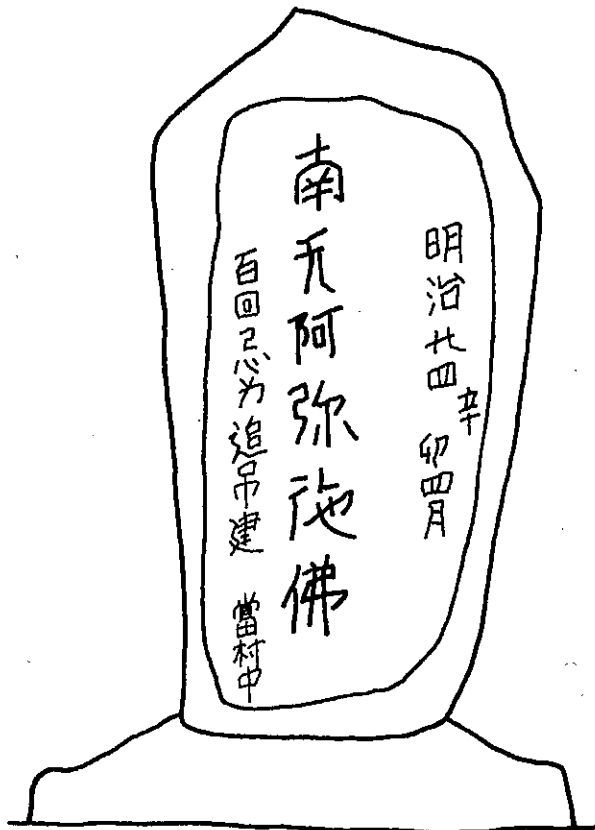 明治廿四辛卯四月
南无阿弥陀佛
百回忌為追吊建 當村中